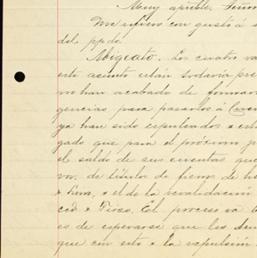 Muy apreble Señor
Me refiero con gusto á s
del ppdo.
Abigeato. Los cuatro va
este asunto estan todavia pre
no han acabado de formar
gencias para pasarlos á
ya han sido expulsados
gado que para el próximo
el saldo de sus cuentas que
vor. de titulos de fierro de he
el de la revalidación
ced. El proceso va
es de esperarse que les den
que con esto la expulsión